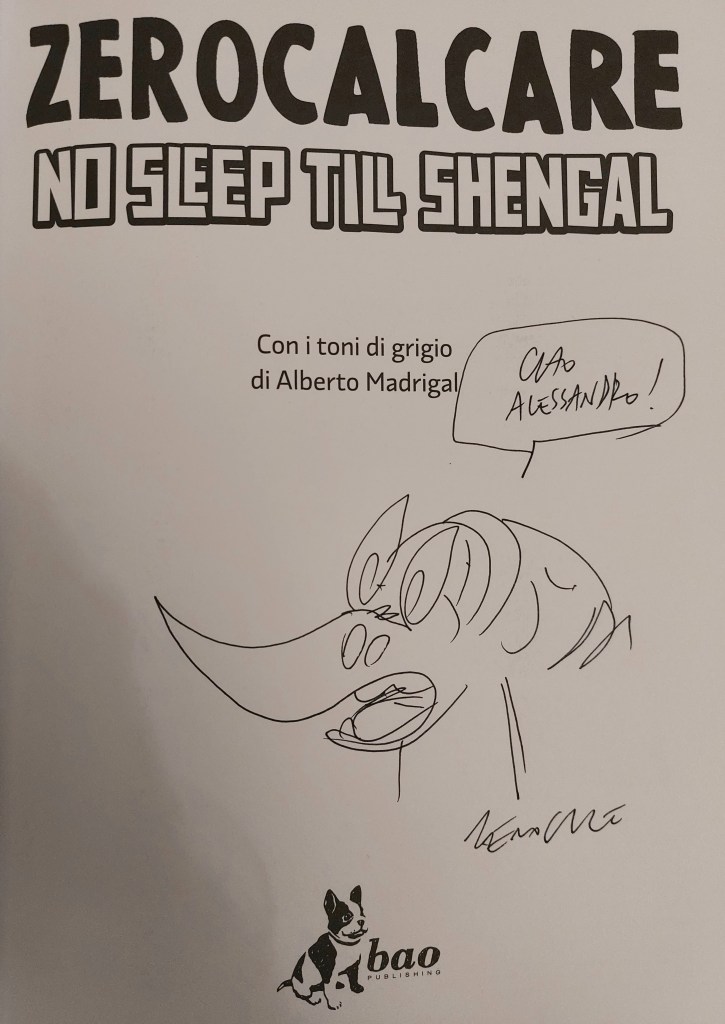 ZEROCALCARE
NO SLEEP TILL SHENGAL
Con i toni di grigio
di Alberto Madrigal
CIAO
ALESSANDRO!
bao
PUBLISHING